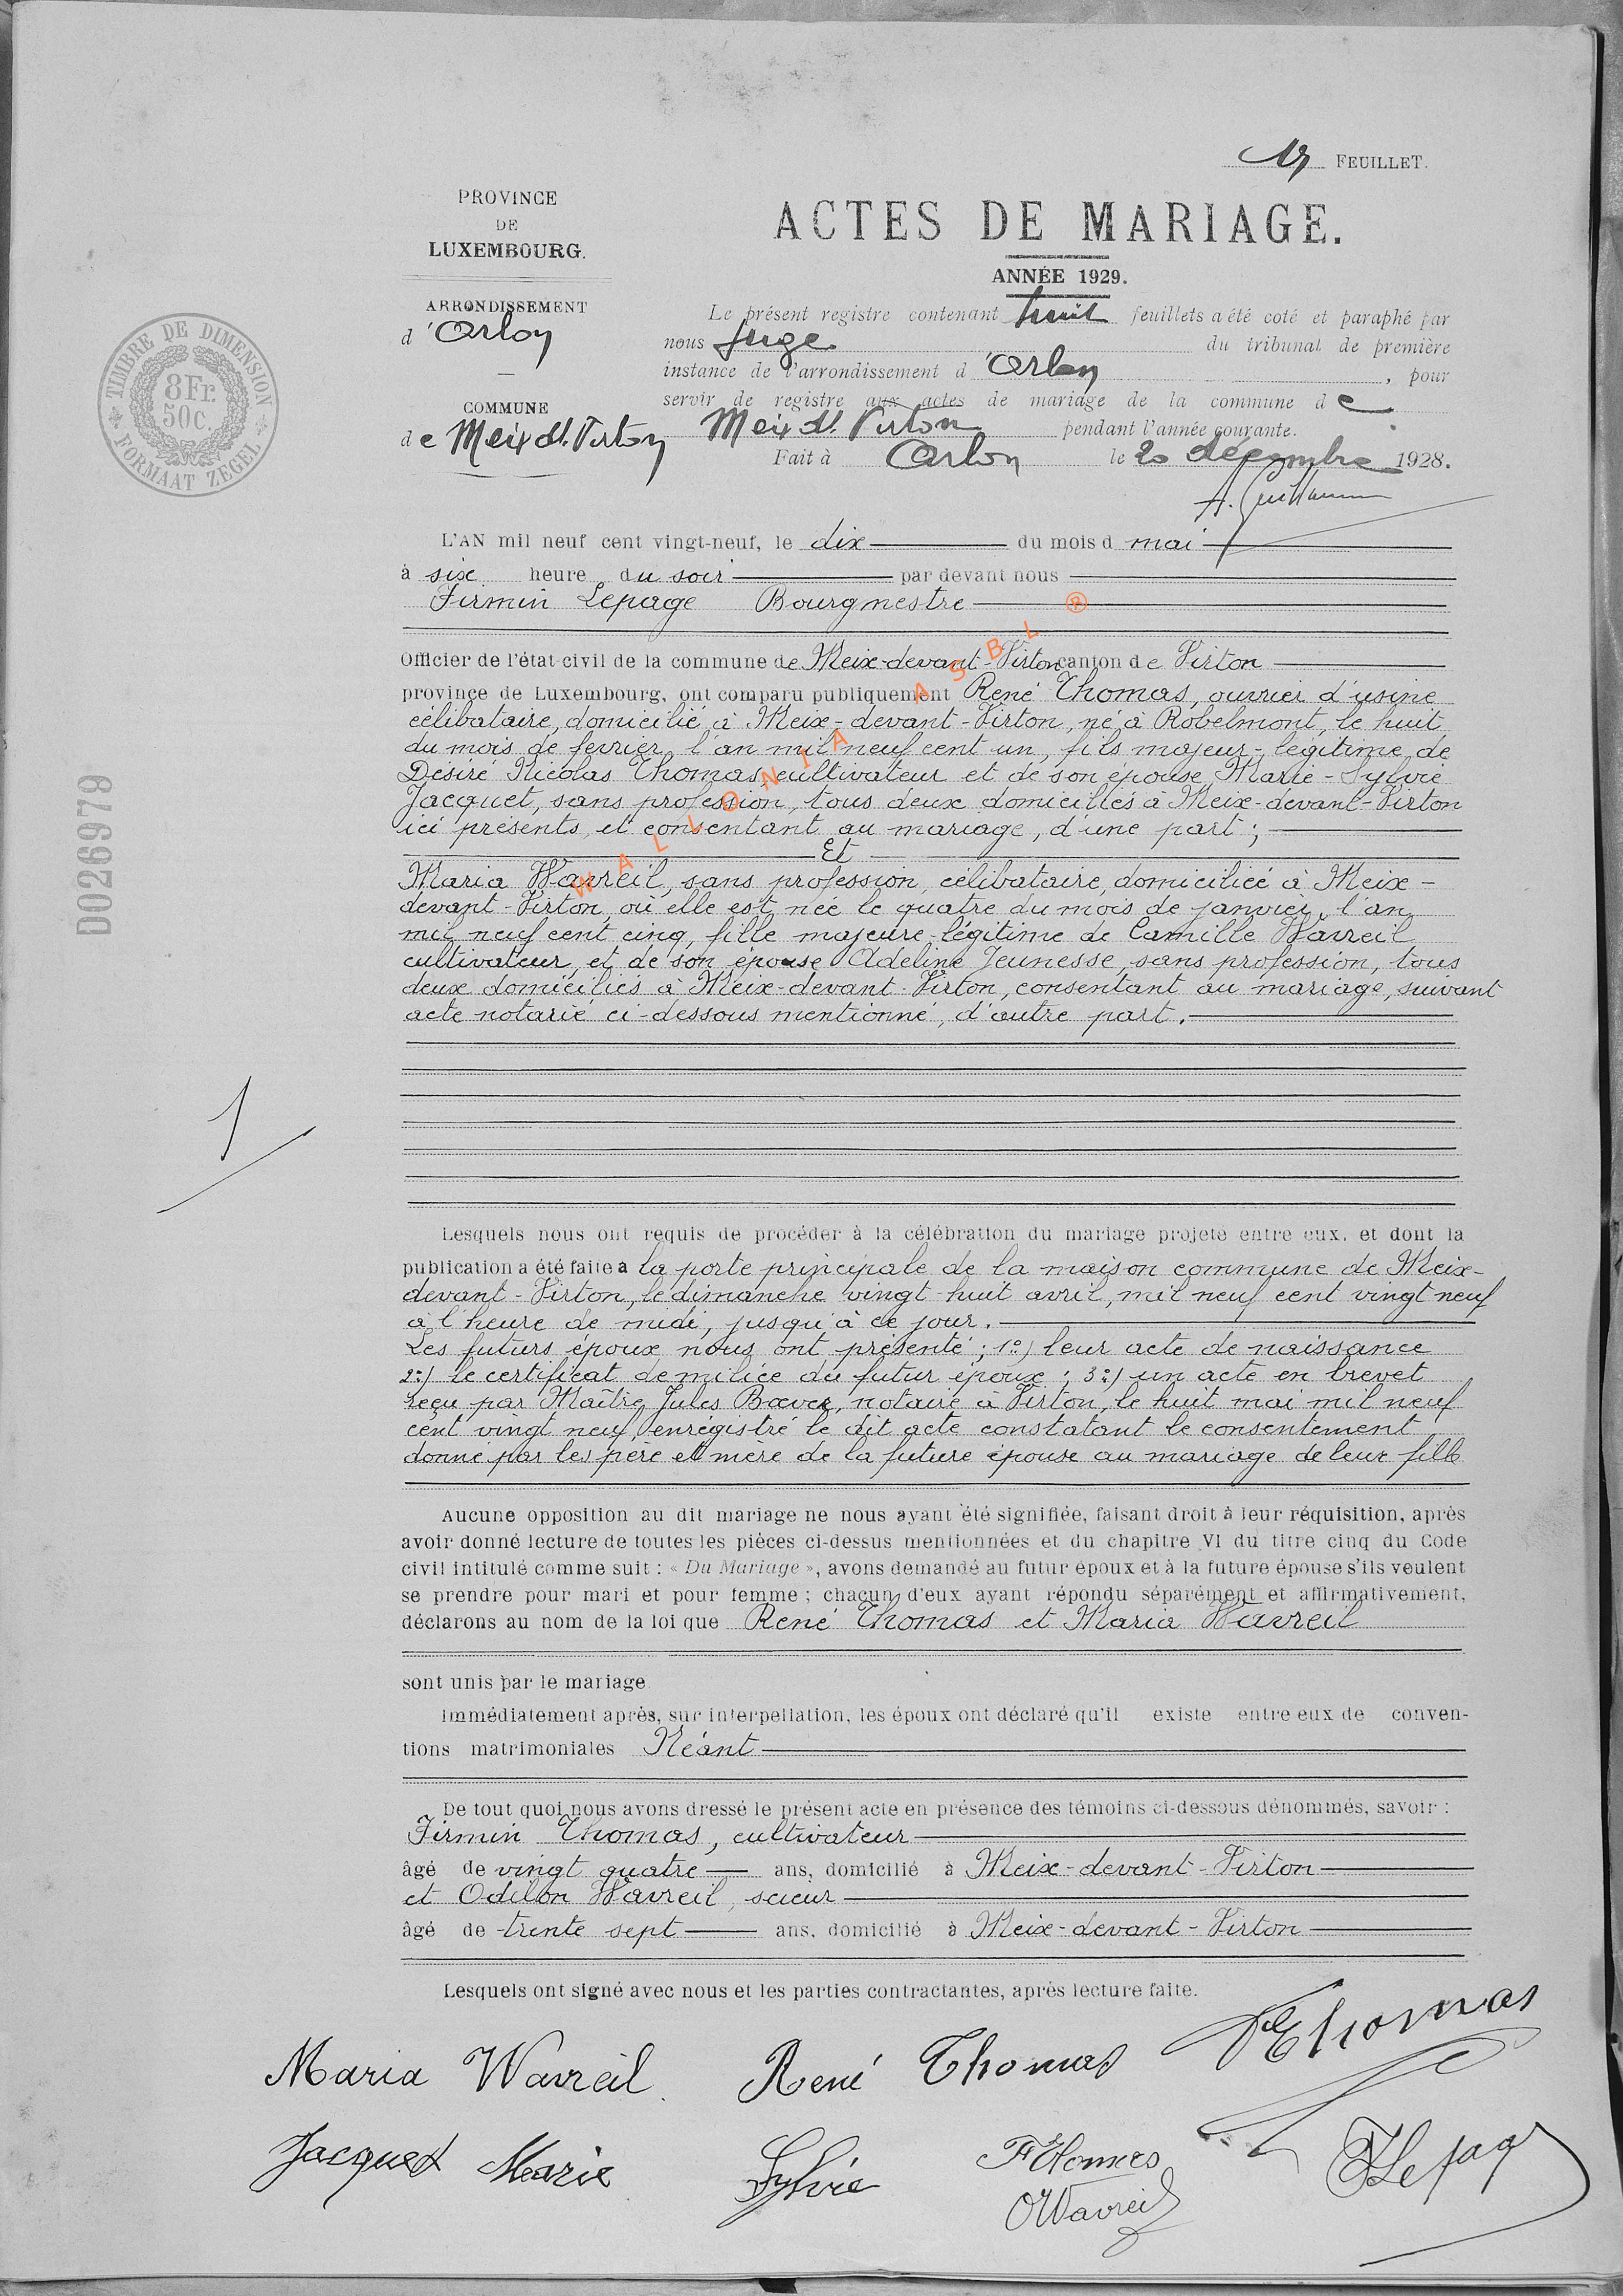 FEUILLET.
PROVINCE
DE
LUXEMBOURG.
ACTES DE MARIAGE.
ANNÉE 1929.
ARRONDISSEMENT
d'Arlon
COMMUNE
de Meix dt. Virton
TIMBRE DE DIMENSION
8Fr.
50c.
FORMAAT ZEGEL
D026979
Le présent registre contenant huit feuillets a été coté et paraphé par
nous Juge du tribunal de première
instance de l'arrondissement d'Arlon, pour
servir de registre aux actes de mariage de la commune de
Meix dt. Virton pendant l'année courante.
Fait à Arlon le 20 décembre 1928.
L'AN mil neuf cent vingt-neuf, le dix du mois d mai
à six heure du soir par devant nous
Firmin Lepage Bourgmestre
Officier de l'état-civil de la commune de Meix-devant-Virton canton de Virton
province de Luxembourg, ont comparu publiquement René Thomas, ouvrier d'usine
célibataire, domicilié à Meix-devant-Virton, né à Robelmont, le huit
du mois de février, l'an mil neuf cent un, fils majeur-légitime de
Désiré Nicolas Thomas, cultivateur et de son épouse Marie-Sylvie
Jacquet, sans profession, tous deux domiciliés à Meix-devant-Virton
ici présents et consentant au mariage, d'une part;
Et
Maria Wavreil, sans profession, célibataire, domiciliée à Meix-
devant-Virton, où elle est née le quatre du mois de janvier, l'an
mil neuf cent cinq, fille majeure-légitime de Camille Wavreil
cultivateur, et de son épouse Adeline Jeunesse, sans profession, tous
deux domiciliés à Meix-devant-Virton, consentant au mariage, suivant
acte notarié ci-dessous mentionné, d'autre part.
WALLONIA ASBL ®
1
Lesquels nous ont requis de procéder à la célébration du mariage projeté entre eux, et dont la
publication a été faite à la porte principale de la maison commune de Meix-
devant-Virton, le dimanche vingt-huit avril, mil neuf cent vingt neuf
à l'heure de midi, jusqu'à ce jour.
Les futurs époux nous ont présenté; 1°) leur acte de naissance
2°) le certificat de milice du futur époux; 3°) un acte en brevet
reçu par Maître Jules, notaire à Virton, le huit mai mil neuf
cent vingt neuf, enrégistré le dit acte constatant le consentement
donné par les père et mère de la future épouse au mariage de leur fille
Aucune opposition au dit mariage ne nous ayant été signifiée, faisant droit à leur réquisition, après
avoir donné lecture de toutes les pièces ci-dessus mentionnées et du chapitre VI du titre cinq du Code
civil intitulé comme suit : « Du Mariage », avons demandé au futur époux et à la future épouse s'ils veulent
se prendre pour mari et pour femme ; chacun d'eux ayant répondu séparément et affirmativement,
déclarons au nom de la loi que René Thomas et Maria Wavreil
sont unis par le mariage
Immédiatement après, sur interpellation, les époux ont déclaré qu'il existe entre eux de conven-
tions matrimoniales Néant
De tout quoi nous avons dressé le présent acte en présence des témoins ci-dessous dénommés, savoir :
Firmin Thomas, cultivateur
âgé de vingt quatre ans, domicilié à Meix-devant-Virton
et Odilon Wavreil, scieur
âgé de trente sept ans, domicilié à Meix-devant-Virton
Lesquels ont signé avec nous et les parties contractantes, après lecture faite.
Maria Wavreil René Thomas Thomas
Jacquet Marie Sylvie F Thomas
OWavreil
FLepage